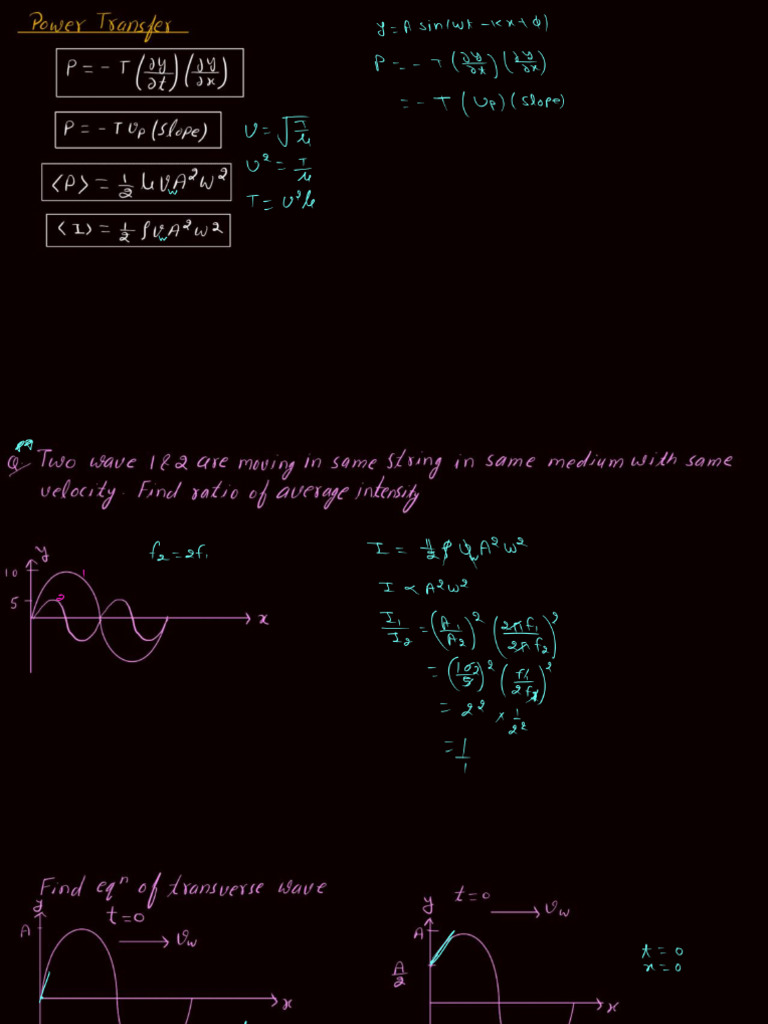 Power Transfer
P = - T (∂y/∂t) (∂y/∂x)
P = - T υp (slope)
<P> = 1/2 μ υw A² ω²
<I> = 1/2 ρ υw A² ω²
υ = √(T/μ)
υ² = T/μ
T = υ² μ
y = A sin(ωt - kx + ϕ)
P = - T (∂y/∂x) (∂y/∂x)
= - T (υp) (slope)
Q/ Two wave 1 & 2 are moving in same string in same medium with same
velocity. Find ratio of average intensity
y
10
5
1
2
x
f₂ = 2f₁
I = 1/2 ρ υw A² ω²
I ∝ A² ω²
I₁/I₂ = (A₁/A₂)² (2πf₁/2πf₂)²
= (10 2/5)² (f₁/2f₁)²
= 2² × 1/2²
= 1/1
Find eqⁿ of transverse wave
y
A
t = 0
υw
x
y
t = 0
υw
A
A/2
x
t = 0
x = 0